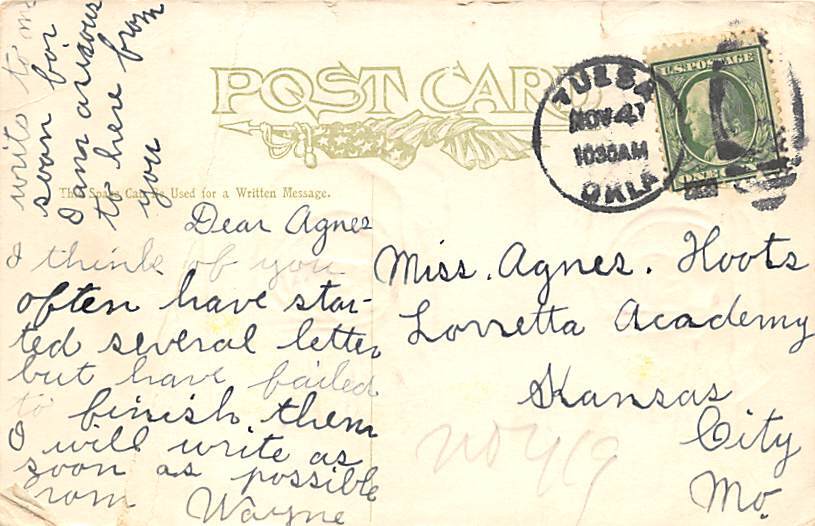 POST CARD
This Space Can Be Used for a Written Message.
TULSA
NOV 4
1030AM
OKLA
U.S. POSTAGE
ONE
Dear Agnes
I think of you
often have star-
ted several letter
but have failed
to finish them
I will write as
soon as possible
Wayne
write to me
soon for
I am anxious
to here from
you
Miss. Agnes. Hoots
Lorretta Academy
Kansas
City
Mo.